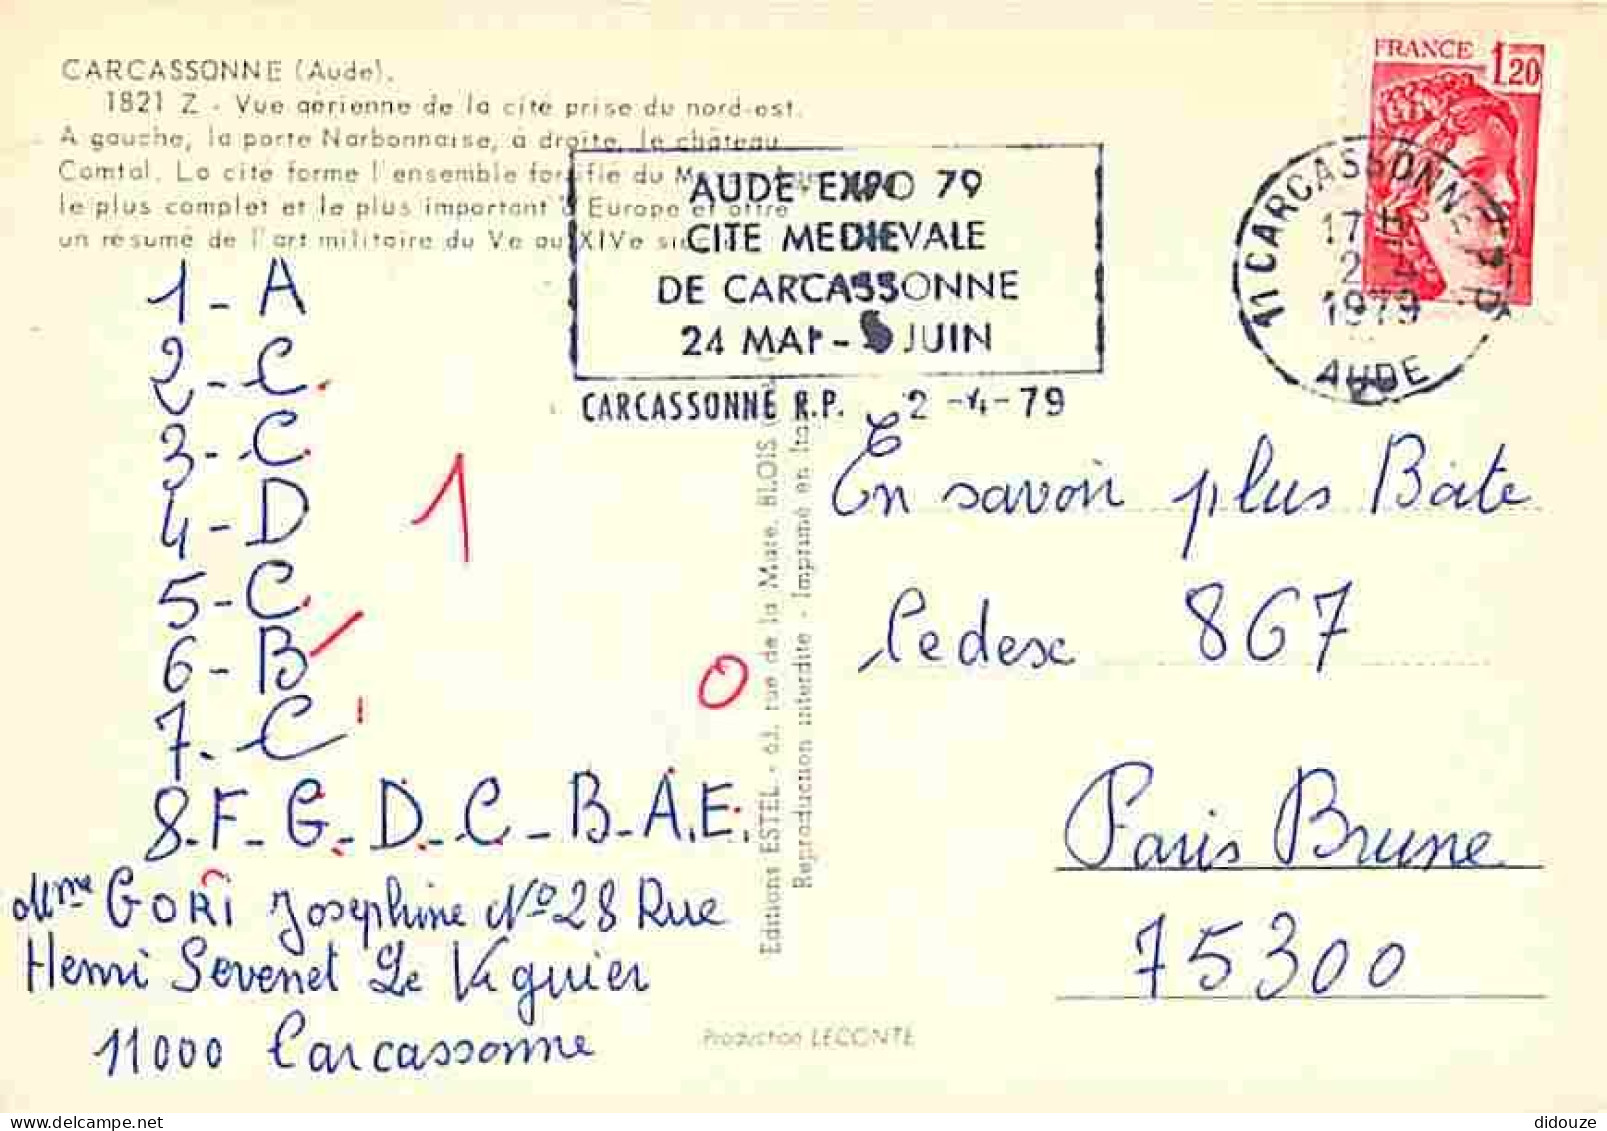 CARCASSONNE (Aude).
1821 Z - Vue aérienne de la cité prise du nord-est.
A gauche, la porte Narbonnaise, à droite, le château
Comtal. La cité forme l'ensemble fortifié du Moyen Age
le plus complet et le plus important d'Europe et offre
un résumé de l'art militaire du Ve au XIVe
FRANCE 1,20
AUDE-EXPO 79
CITE MEDIEVALE
DE CARCASSONNE
24 MAI - 5 JUIN
CARCASSONNE R.P. 2 -4-79
11 CARCASSONNE R.P.
17 H
2 - 4
1979
AUDE
1 - A
2 - C.
3 - C.
4 - D
5 - C.
6 - B
7 - C
8 - F - G - D - C - B - A. E.
1
0
Mme GORI Josephine N° 28 Rue
Henri Sevenet Le Viguier
11000 Carcassonne
Editions ESTEL - 63, rue de la Mare, BLOIS
Reproduction interdite - Imprimé en
En savoir plus Boite
Cedex 867
Paris Brune
75300
Production LECONTE
didouze